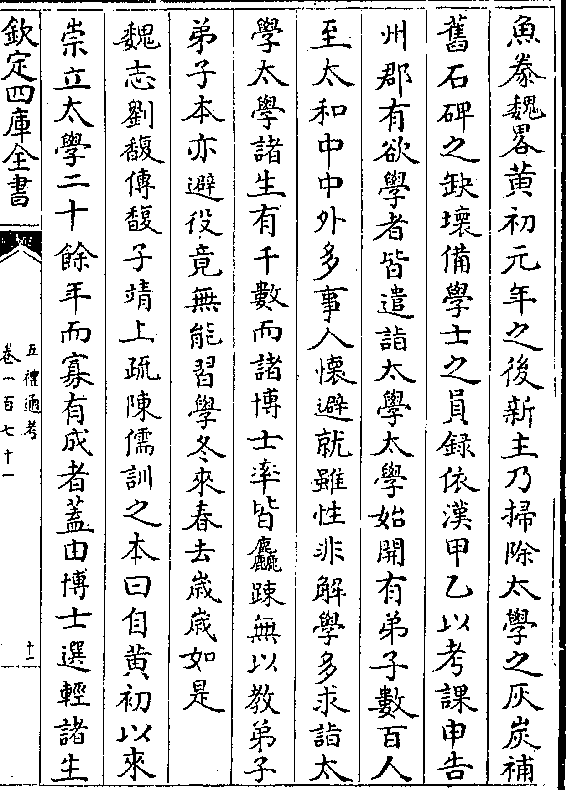 魚豢魏畧黄初元年之後新主乃掃除太學之灰炭補
舊石碑之缺壞備學士之員録依漢甲乙以考課申告
州郡有欲學者皆遣詣太學太學始開有弟子數百人
至太和中中外多事人懷避就雖性非解學多求詣太
學太學諸生有千數而諸博士率皆麤踈無以教弟子
弟子本亦避役竟無能習學冬來春去嵗嵗如是
魏志劉馥傳馥子靖上疏陳儒訓之本曰自黄初以來
崇立太學二十餘年而寡有成者蓋由博士選輕諸生
欽定四庫全書
五禮通考
卷一百七十一
十一